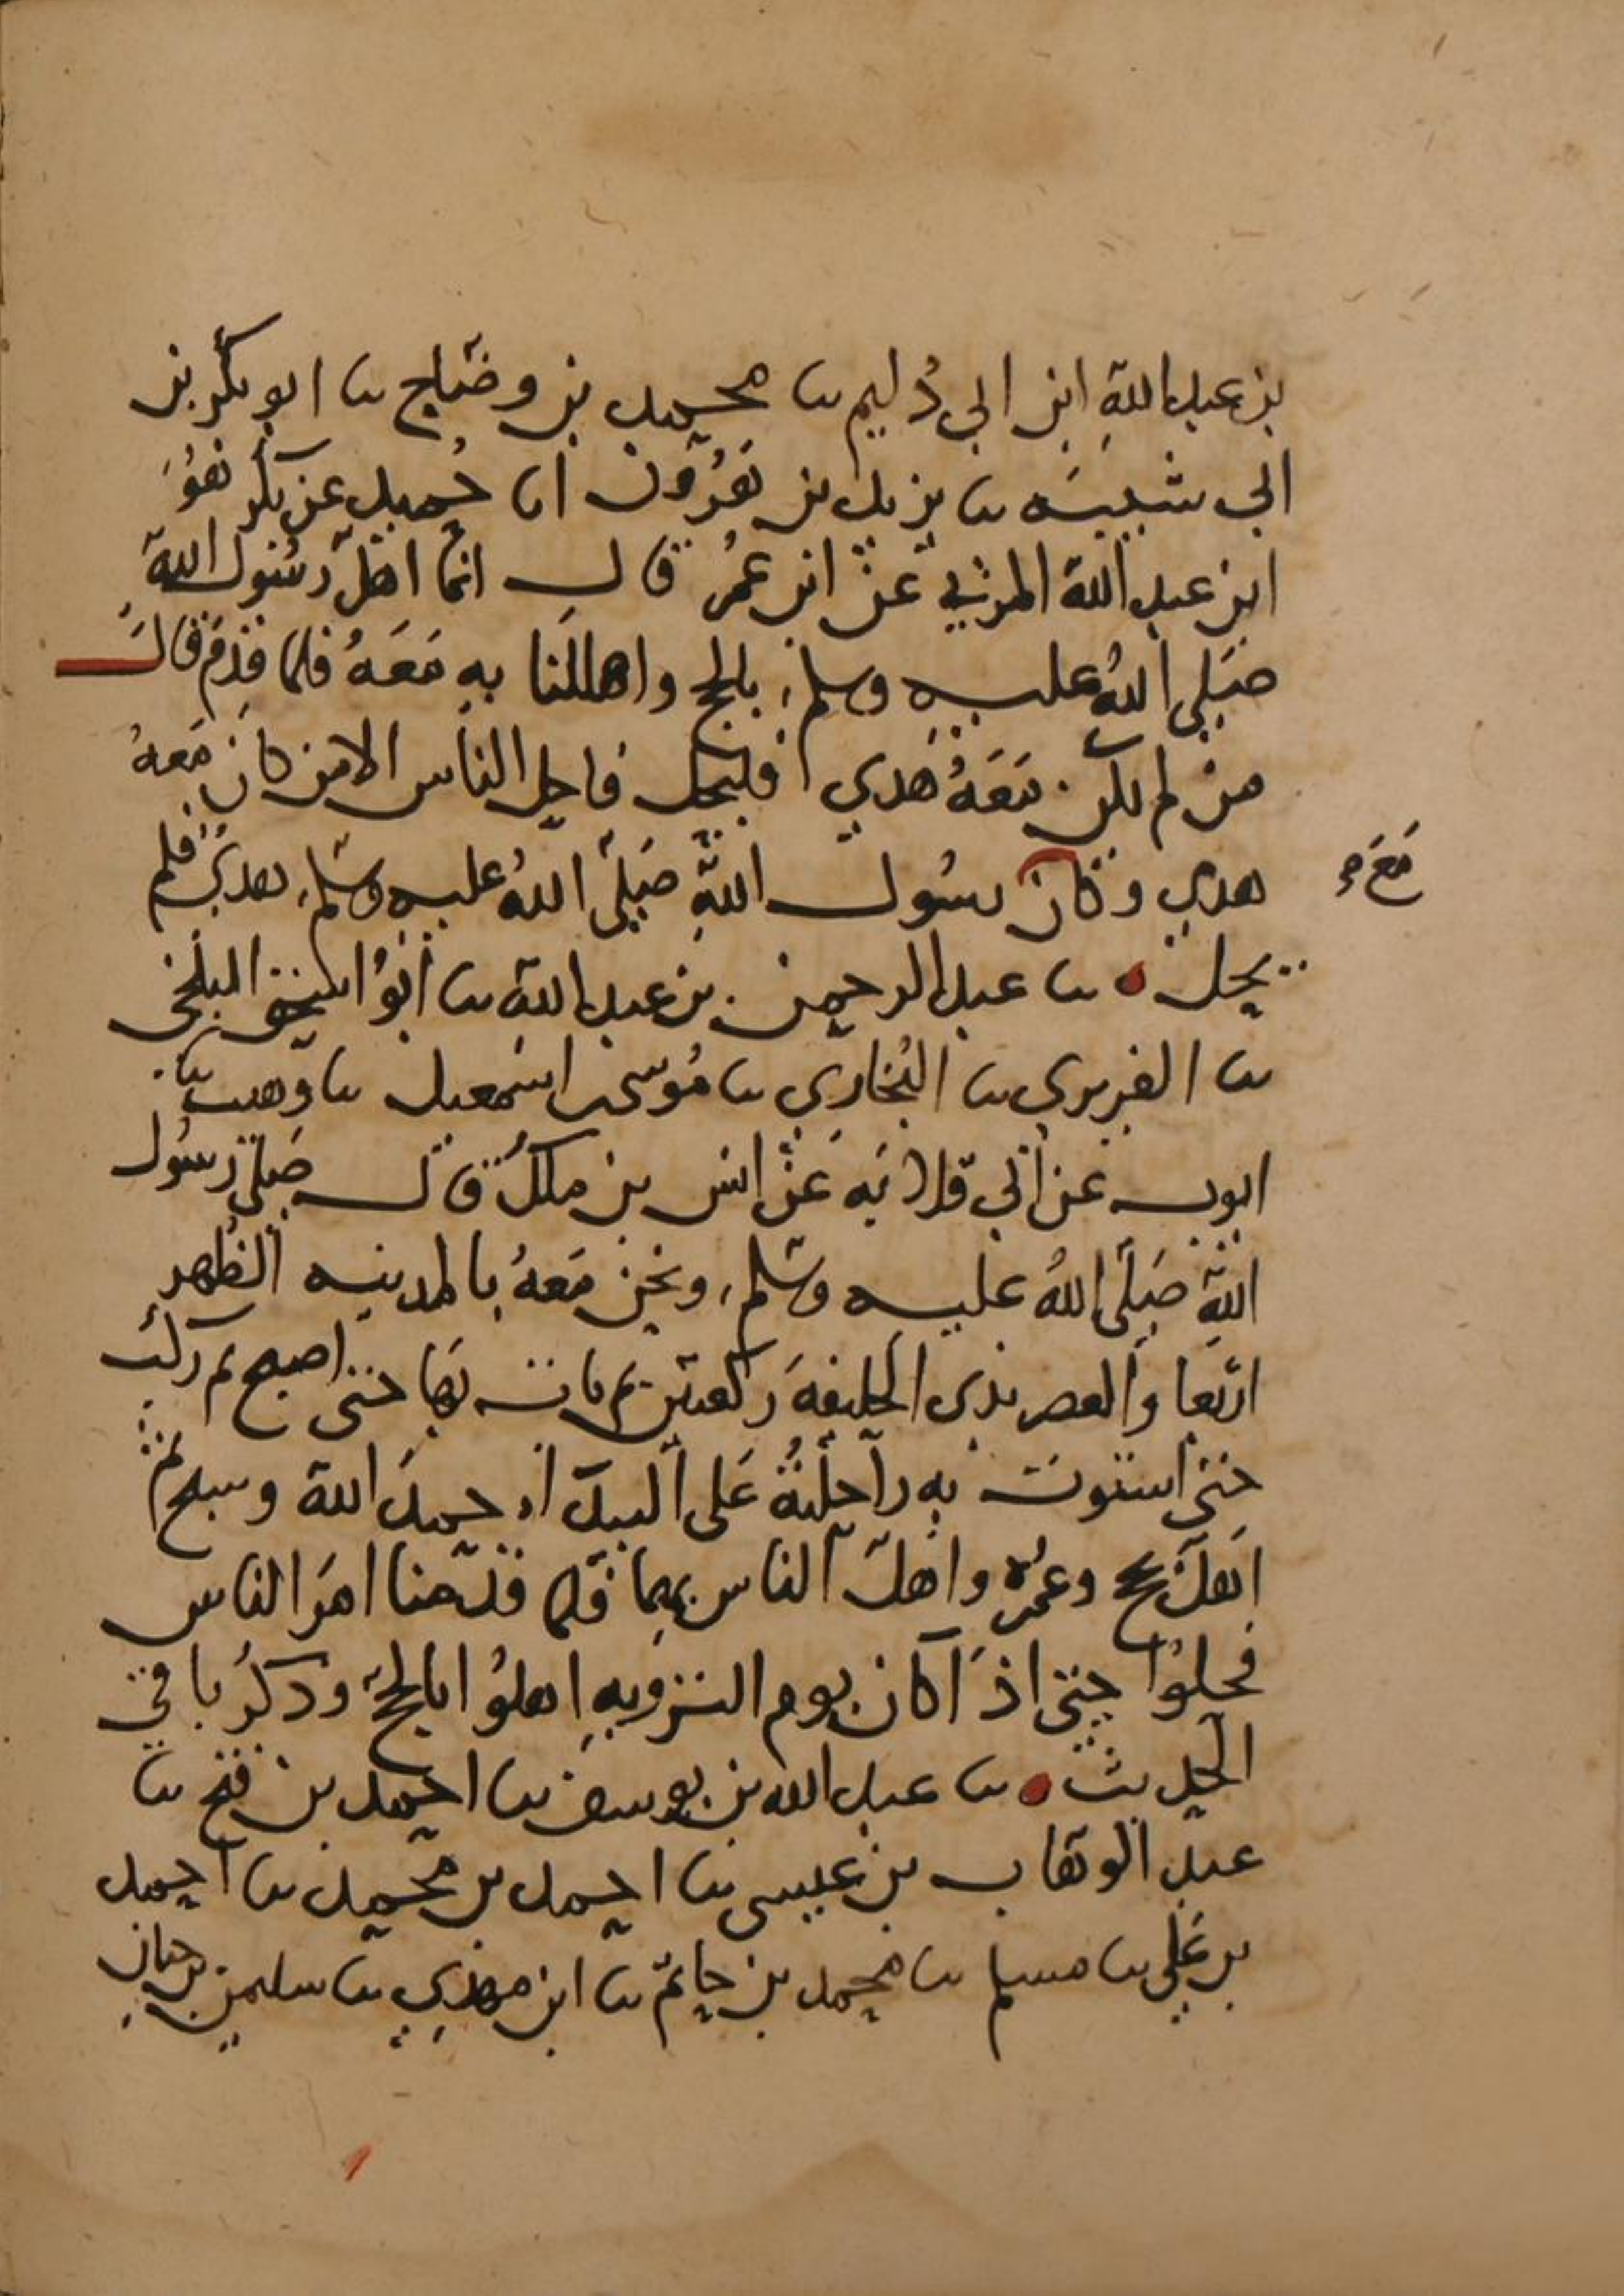 بن عبد الله ابن ابي دُليم ثنا محمد بن وضاح ثنا ابو بكر بن
ابي شيبه ثنا يزيد بن هرون انا حُميد عن بكر هُوَ
ابن عبد الله المزني عن ابن عمر قال انما اهلّ رسُول الله
صَلى اللهُ عليه وسلم بالحج واهللنا به مَعَهُ فلما قدم قال
من لم يكن مَعَهُ هَدي فليحل فاحل الناس الا من كان مَعهُ
هدي وكان رسُول اللهِ صَلى اللهُ عليه وسَلم هدي فلم
مَعَه
يحل ثنا عبد الرحمن بن عبد الله ثنا أبوُ اسحق البلخي
ثنا الفربري ثنا البُخاري ثنا مُوسى بن اسمعيل ثنا وهيب ثنا
ايوب عن ابي قلابَه عَن انس بن ملك قال صَلى رسُول
اللهِ صَلى اللهُ عليه وسَلم ونحن مَعهُ بالمدينه الظُهر
اربَعا والعصر بذى الحليفَه ركعتين ثم بات بهَا حتى اصبح ثم ركب
حتى استوت به راحلتُهُ عَلى البيداء حمدَ الله وسبح ثم
اَهلّ بحج وعُمره واهلّ الناس بهما فلما قدمنا امَر الناس
فحلوُا حتى اذَا كان يوم الترويهِ اهلوُا بالحج وذكرُ باقي
الحديث ثنا عبد الله بن يوسف ثنا احمد بن فتح ثنا
عبد الوهَاب بن عيسى ثنا احمد بن محمد ثنا احمد
بن عَلي ثنا مسلم ثنا محمد بن حاتم ثنا ابن مهدي ثنا سليم بن حيان